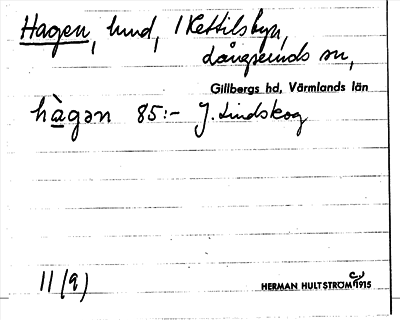 Hagen, lund, 1 Kettilsbyn,
Långseruds sn,
Gillbergs hd, Värmlands län
hàgən 85:- J. Lindskog
11 (9)
HERMAN HULTSTRÖM 1915